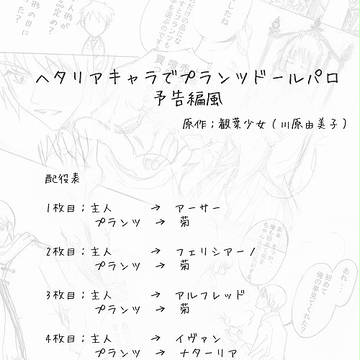 ヘタリアキャラでプランツドールパロ
予告編風
原作；観葉少女（川原由美子）
配役表
1枚目；主人 → アーサー
プランツ → 菊
2枚目；主人 → フェリシアーノ
プランツ → 菊
3枚目；主人 → アルフレッド
プランツ → 菊
4枚目；主人 → イヴァン
プランツ → ナターリア